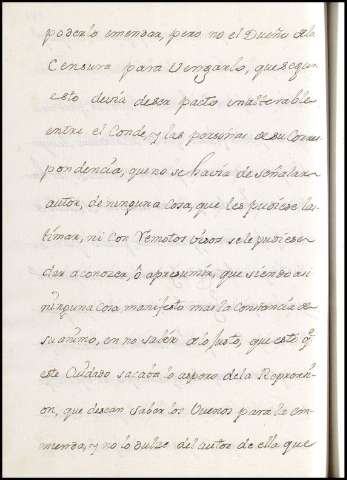 poderlo enmendar, pero no el Dueño de la
Censura para Vengarlo, que segun
esto devia de ser pacto inalterable
entre el Conde, y las personas de su Corres
pondencia, que no se havia de señalar
autor, de ninguna cosa, que les pudiese las
timar, ni con remotos visos se le pudiesen
dar a conocer, ô apresumir, que siendo asi
ninguna cosa manifesto mas la Constancia de
su animo, en no saber
este Cuidado sacava lo aspero de la Reprensi
on, que desean saber los Buenos para la en
mienda, y no lo dulce del autor de ella que